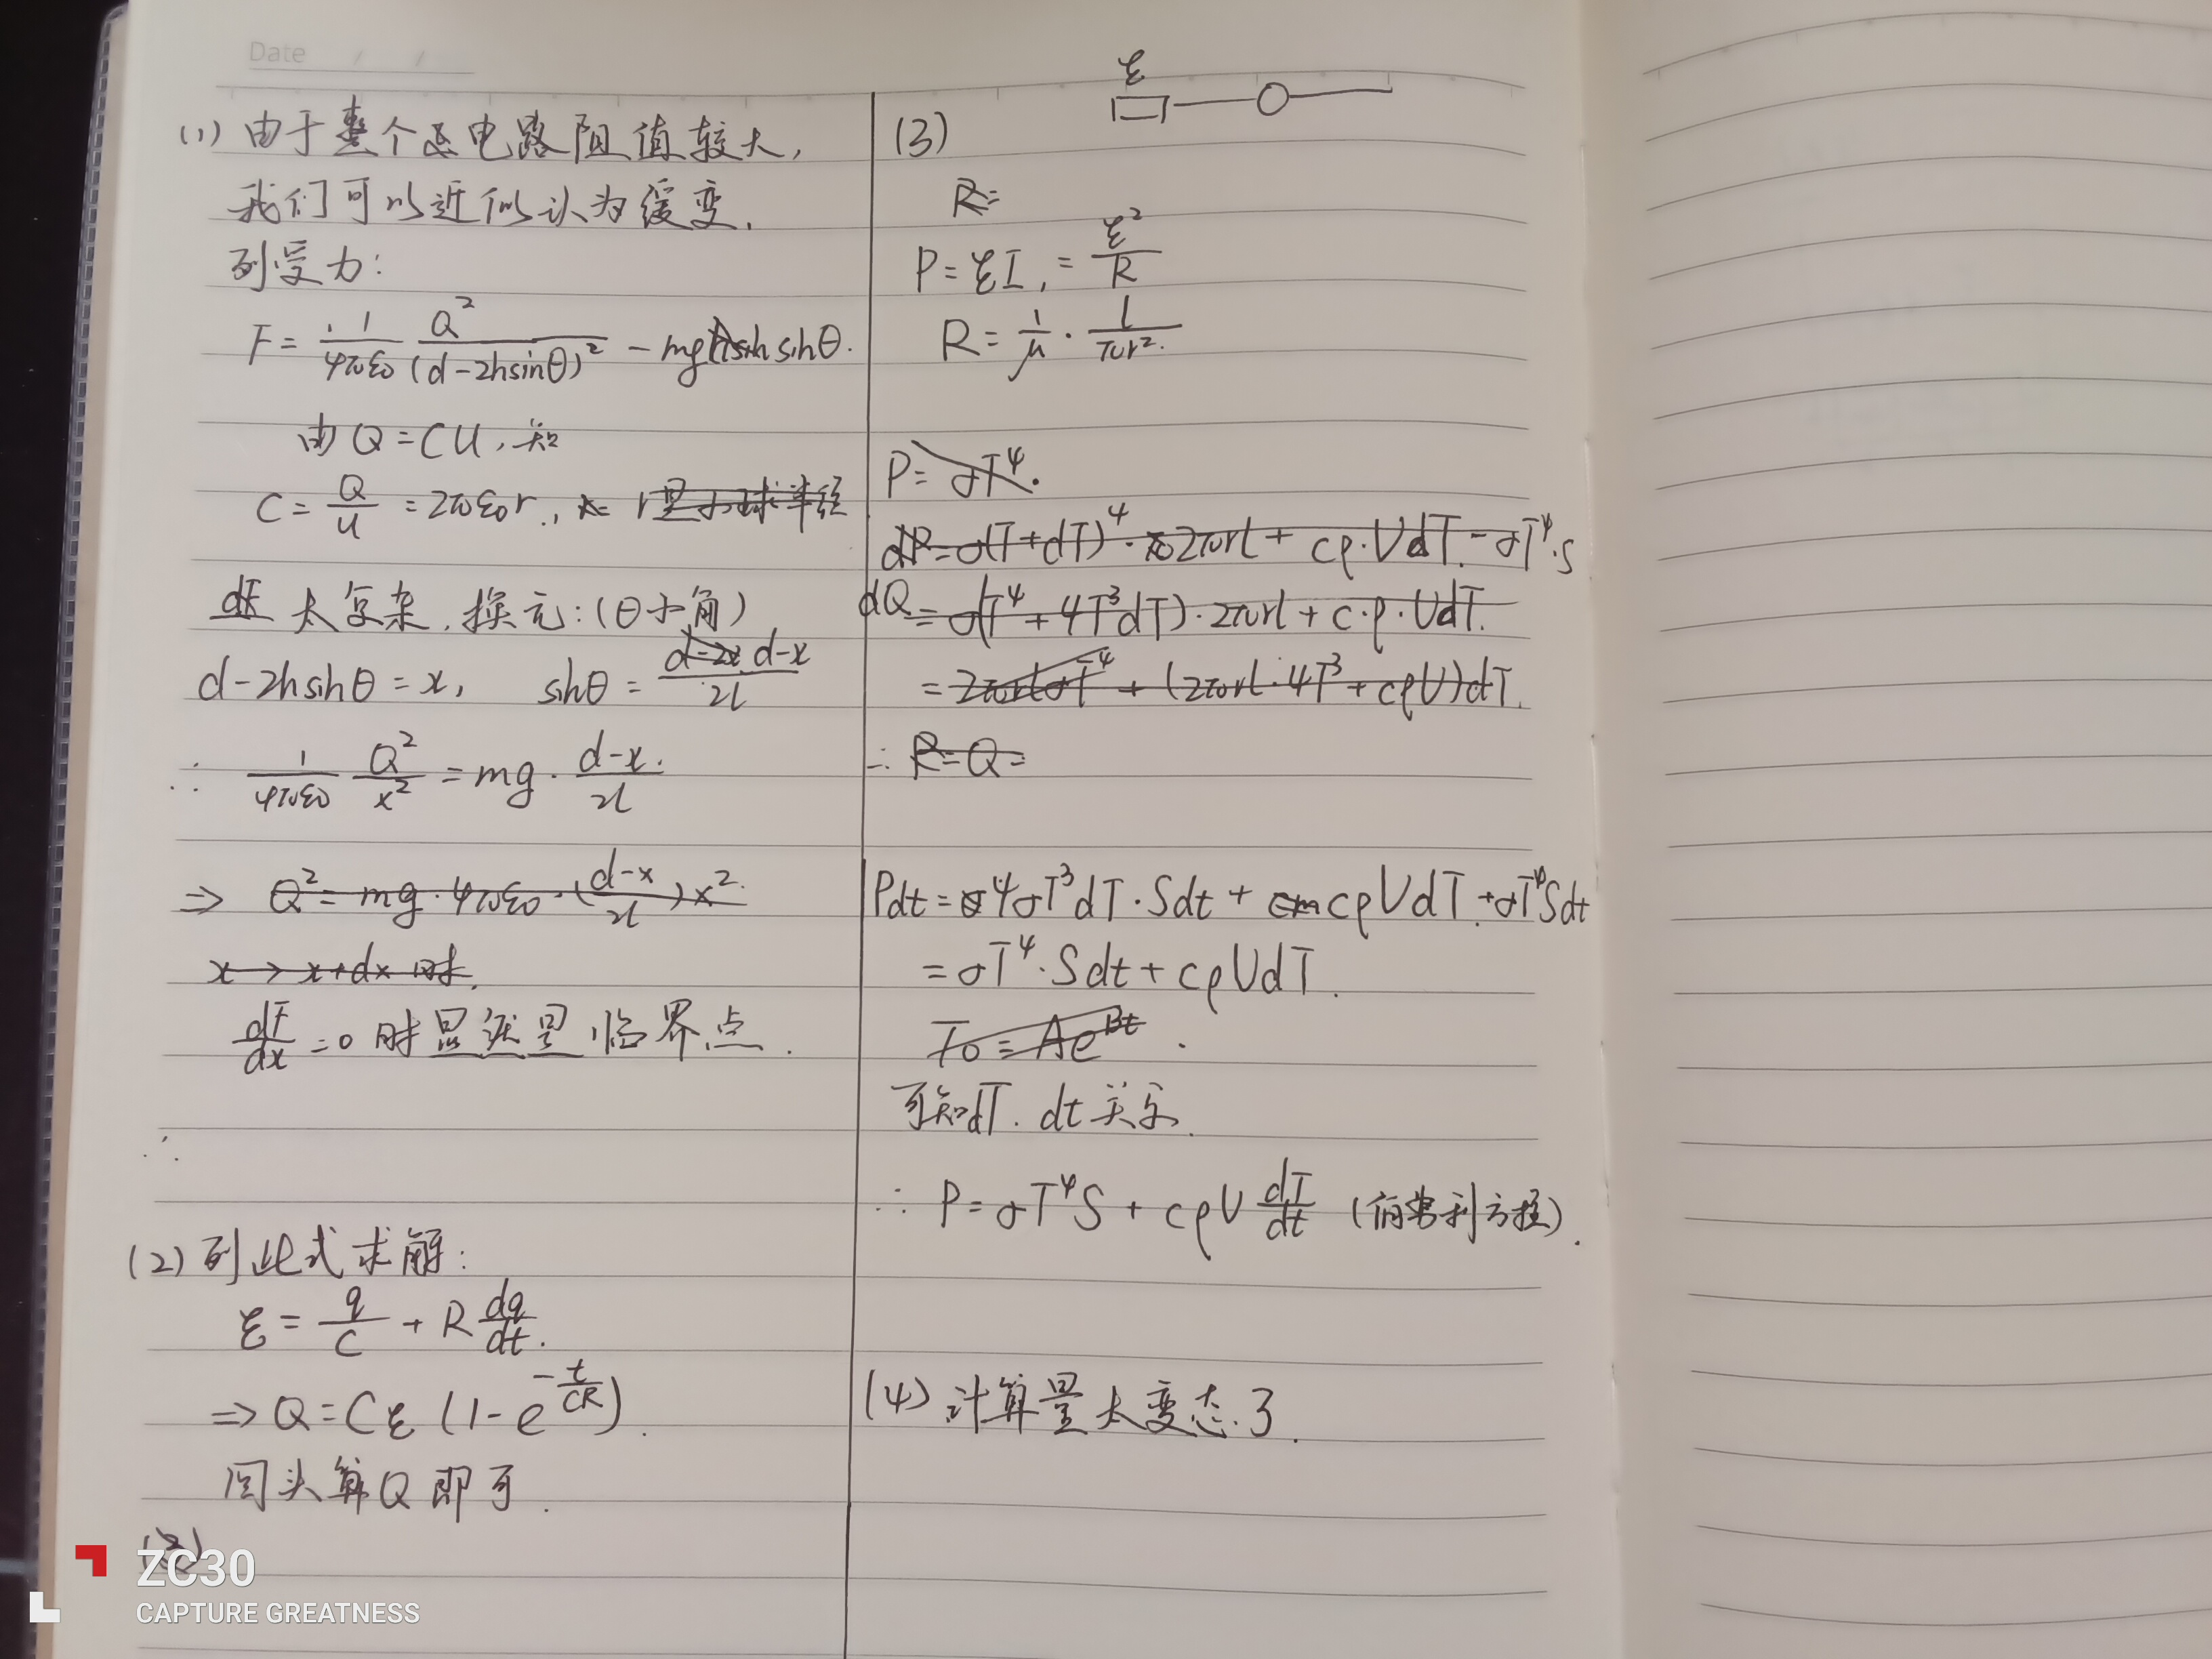 Date / /
(1) 由于整个电路阻值较大,
我们可以近似认为缓变.
列受力:
F = 1/4πε0 Q²/(d-2hsinθ)² - mg sinθ.
由 Q = CU, 知
C = Q/U = 2πε0r, r是小球半径
dF 太复杂, 换元: (θ小角)
d-2hsinθ = x, sinθ = d-x/2l
∴ 1/4πε0 Q²/x² = mg · d-x/2l
⇒ Q² = mg·4πε0·(d-x/2l)x²
x → x+dx 时.
dF/dx = 0 时显然是临界点.
∴
(2) 列此式求解:
ℰ = q/C + R dq/dt.
⇒ Q = Cℰ (1-e^(-t/CR)).
回头算Q即可.
(3)
ZC30
CAPTURE GREATNESS
ℰ
(3)
R=
P = ℰI, = ℰ²/R
R = 1/μ · l/πr².
P = σT⁴.
dP = σ(T+dT)⁴ · 2πrl + cρ·VdT - σT⁴·S
dQ = σ(T⁴+4T³dT)·2πrl + c·ρ·VdT.
= 2πrlσT⁴ + (2πrl·4T³+cρV)dT.
∴ R=Q=
Pdt = 4σT³dT·Sdt + cρVdT + σT⁴Sdt
= σT⁴·Sdt + cρVdT.
T0 = Ae^(Bt).
可知dT. dt关系.
∴ P = σT⁴S + cρV dT/dt (伯努利方程).
(4) 计算量太变态了.